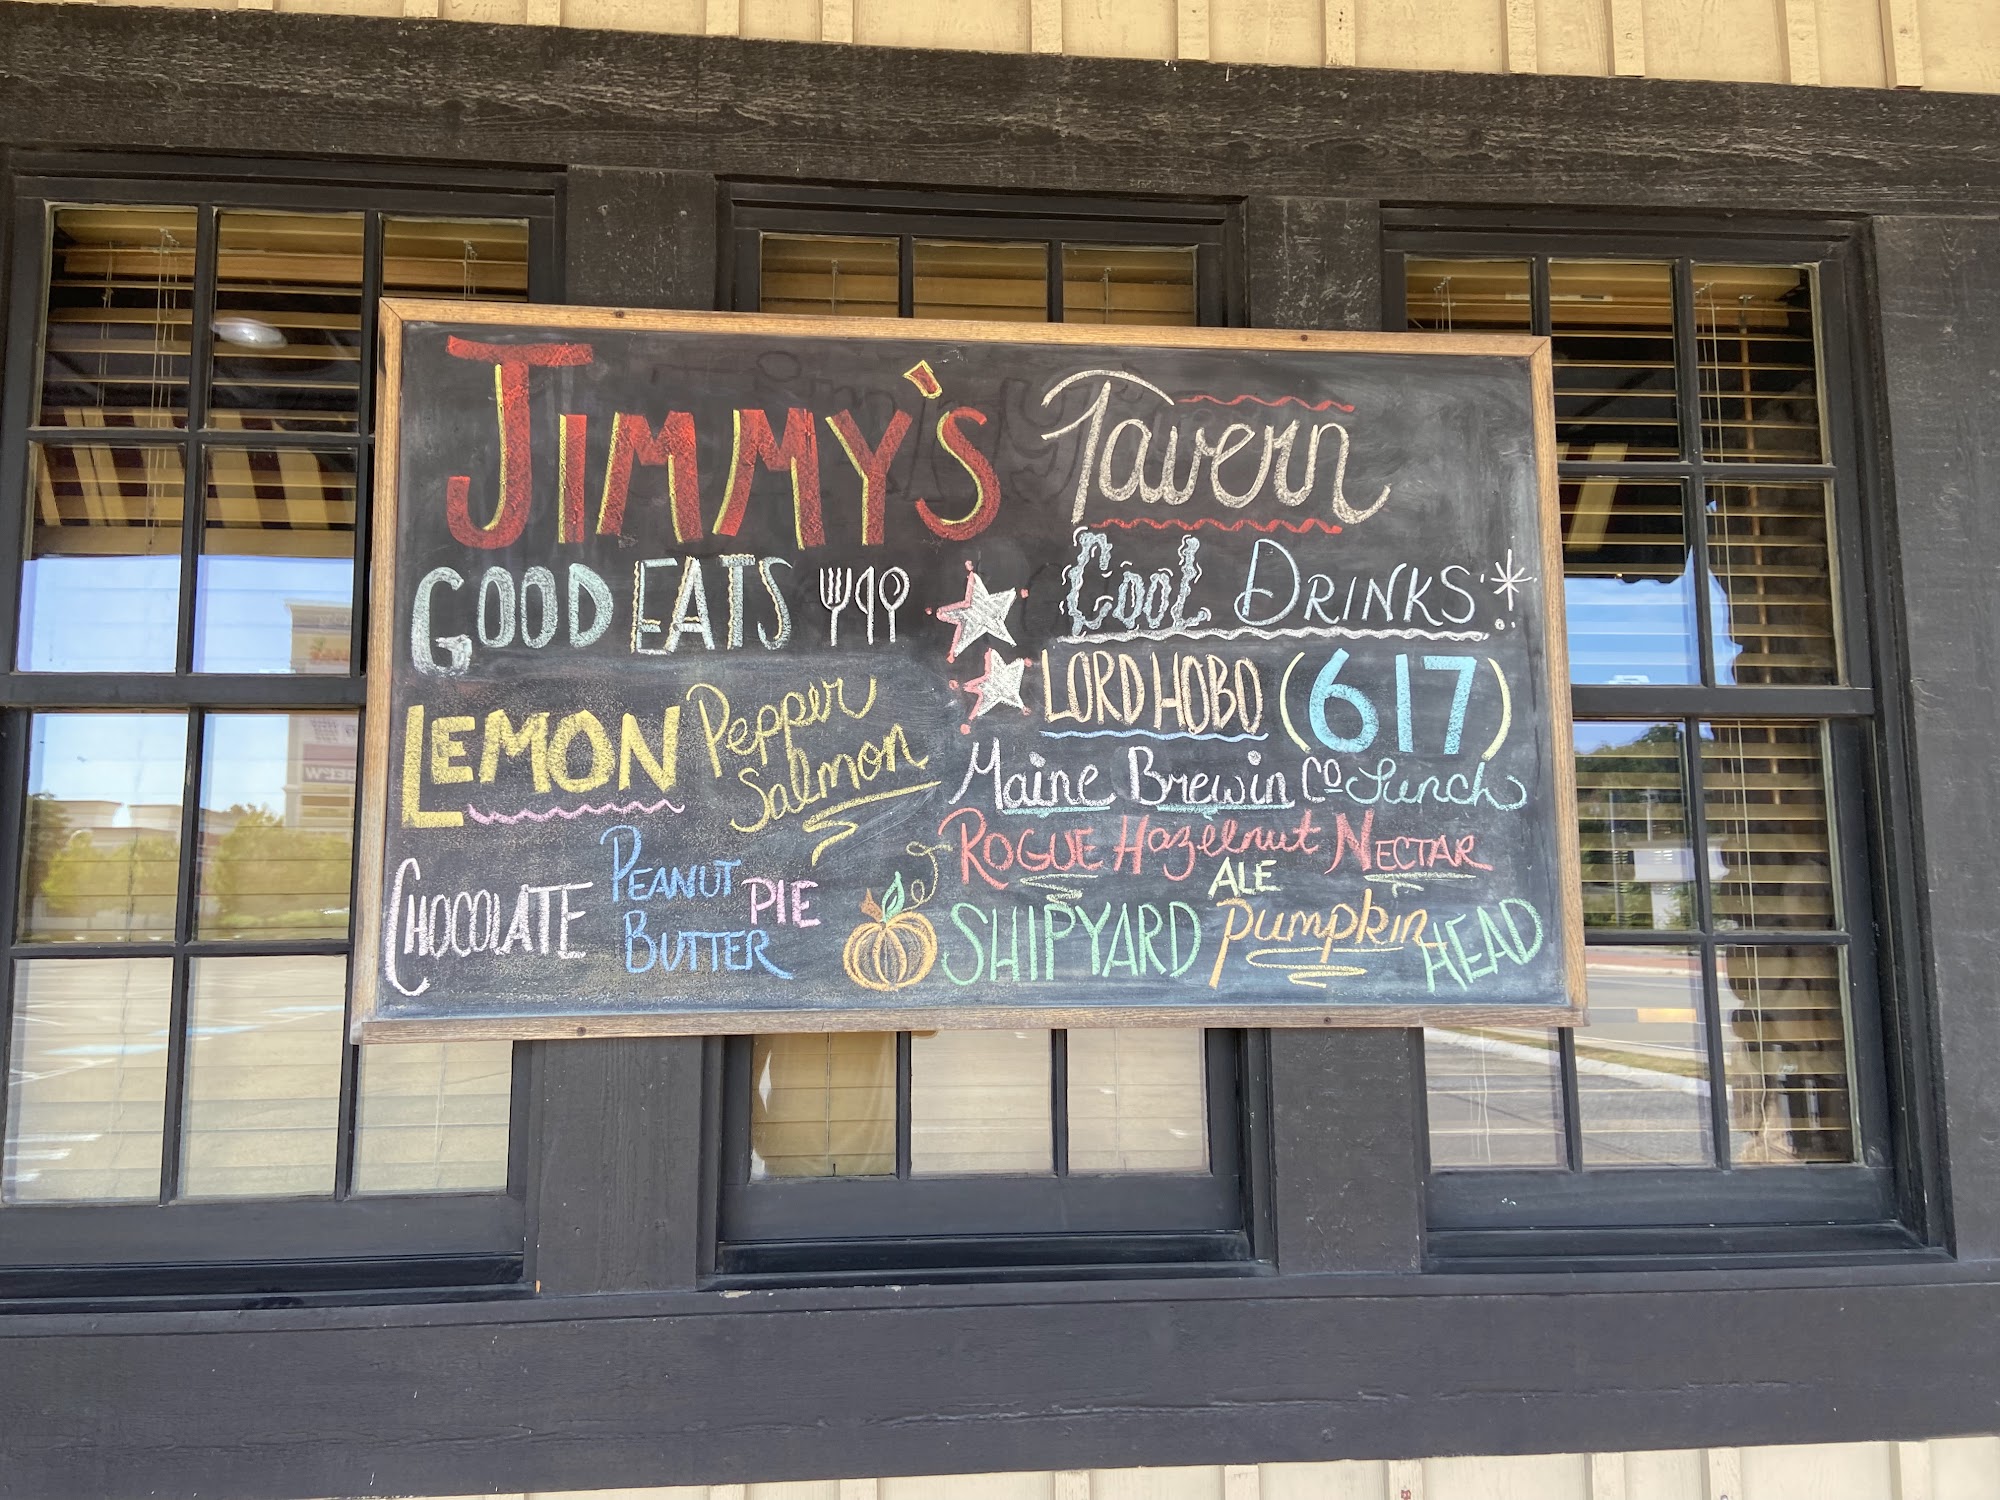 JIMMY'S Tavern
GOOD EATS
COOL DRINKS!
LEMON Pepper
Salmon
LORD HOBO (617)
Maine Brewin Co Lunch
ROGUE Hazelnut NECTAR
ALE
CHOCOLATE PEANUT
BUTTER PIE
SHIPYARD Pumpkin HEAD